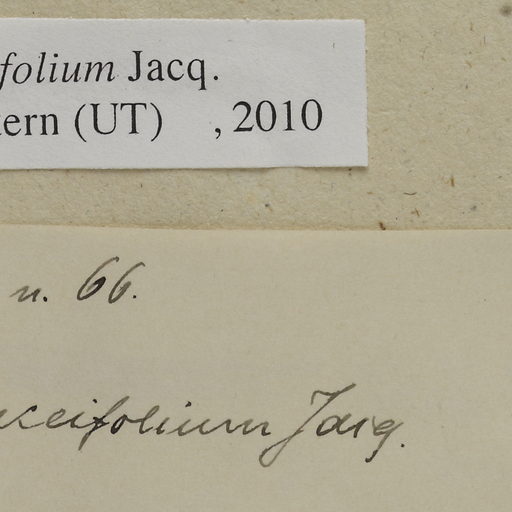 folium Jacq.
ern (UT) , 2010
n. 66.
ceifolium Jacq.